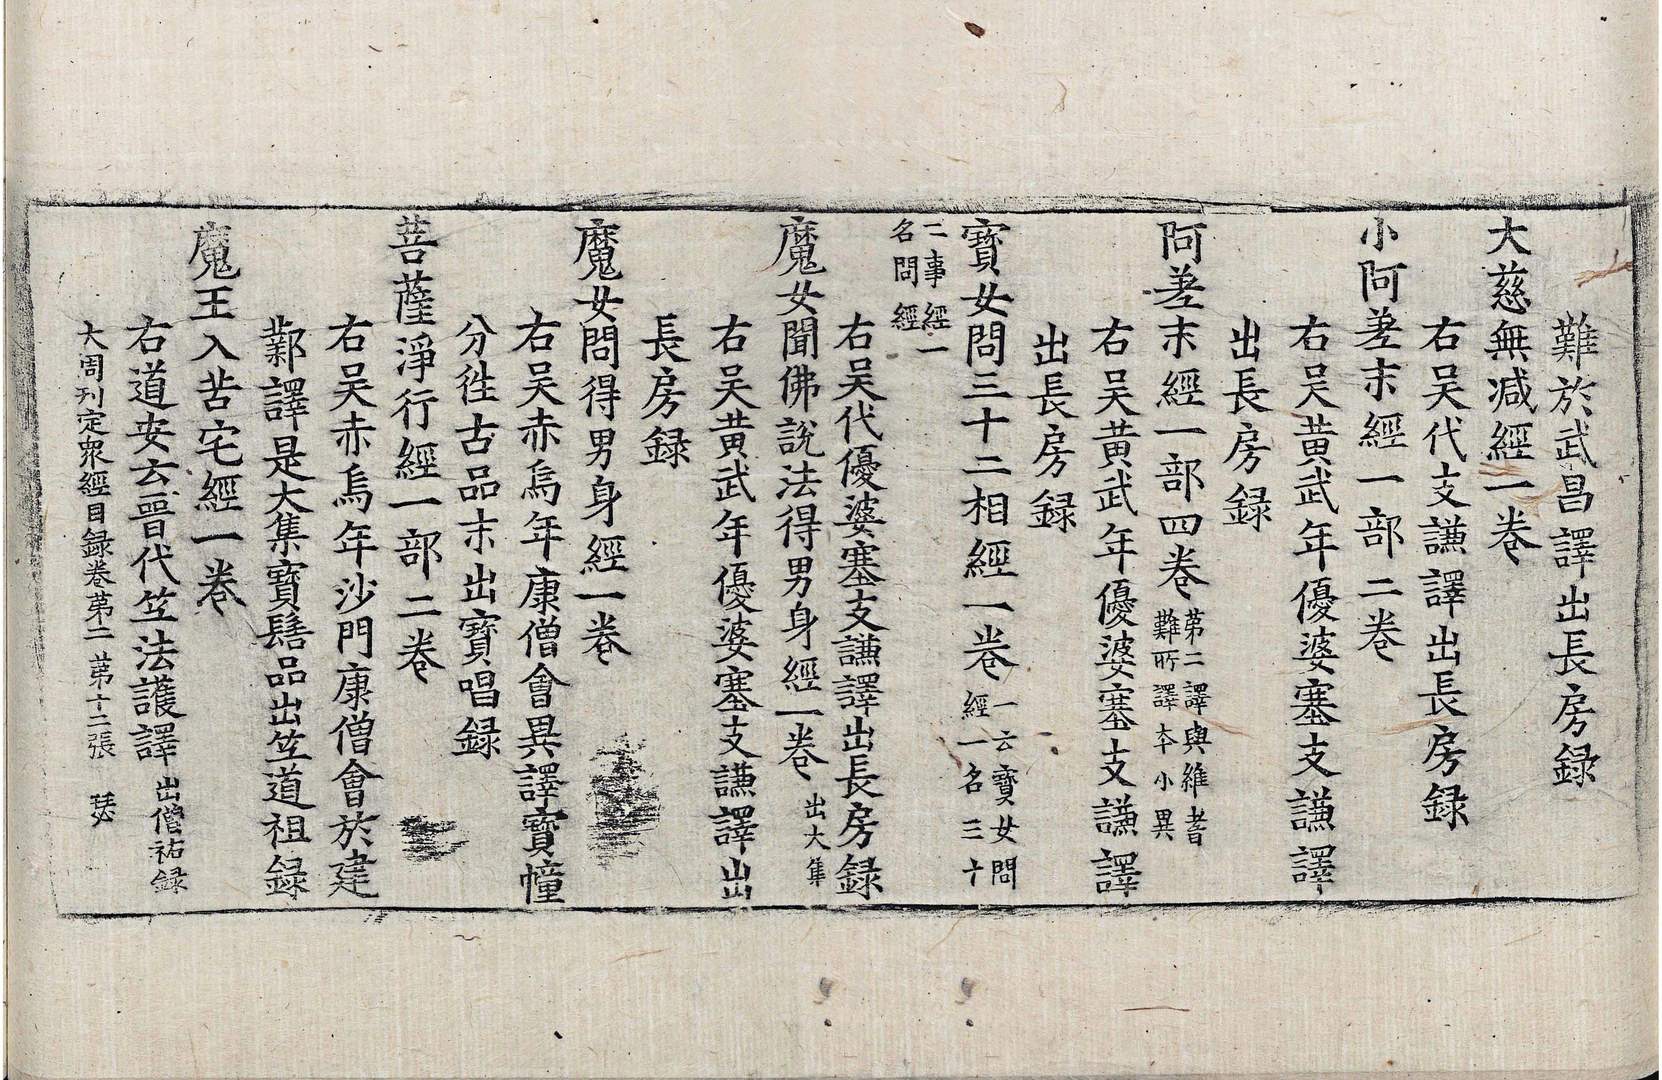 難於武昌譯出長房録
大慈無減經一卷
右吴代支謙譯出長房録
小阿差末經一部二卷
右吴黄武年優婆塞支謙譯
出長房録
阿差末經一部四卷
第二譯與維者
難所譯夲小異
右吴黄武年優婆塞支謙譯
出長房録
寳女問三十二相經一卷
一云寳女問
經一名三十
二事經一
名問經
右吴代優婆塞支謙譯出長房録
魔女聞佛說法得男身經一卷
出大集
右吴黄武年優婆塞支謙譯出
長房録
魔女問得男身經一卷
右吴赤烏年康僧會異譯寳幢
分徃古品末出寳唱録
菩薩淨行經一部二卷
右吴赤烏年沙門康僧會於建
鄴譯是大集寳髻品出竺道祖録
魔王入苦宅經一卷
右道安云晉代竺法護譯
出僧祐録
大周刊定衆經目録卷苐二 苐十二張 瑟